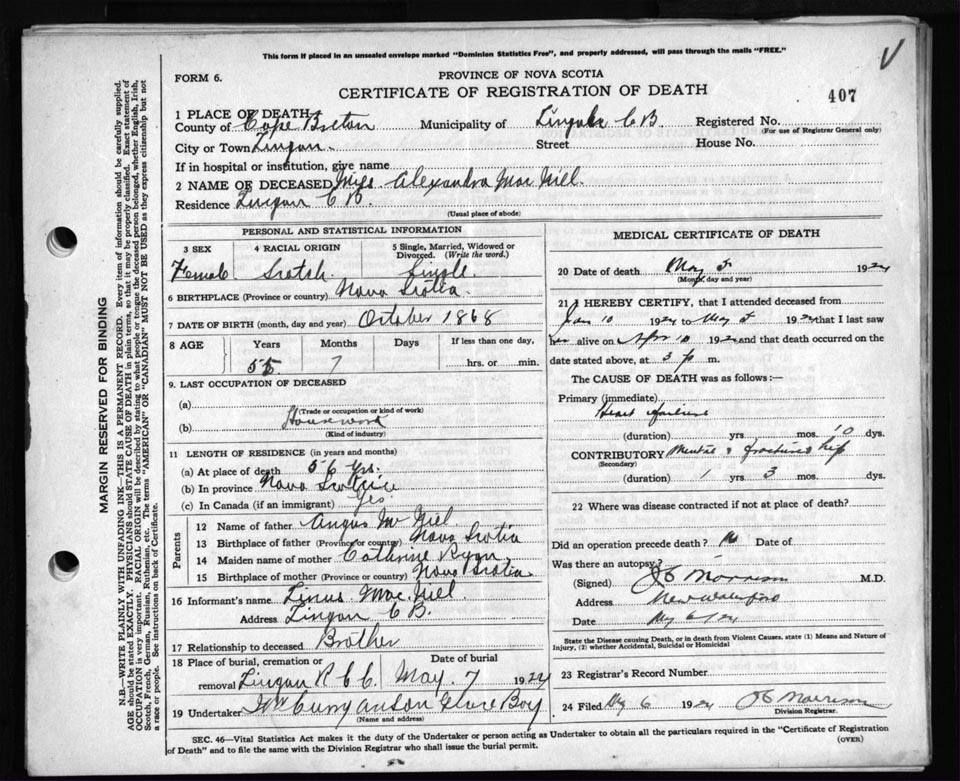 This form if placed in an unsealed envelope marked "Dominion Statistics Free", and properly addressed, will pass through the mails "FREE."
V
FORM 6.
PROVINCE OF NOVA SCOTIA
CERTIFICATE OF REGISTRATION OF DEATH
407
1 PLACE OF DEATH
County of Cape Breton Municipality of Lingan C B Registered No.
(For use of Registrar General only)
City or Town Lingan. Street House No.
If in hospital or institution, give name
2 NAME OF DECEASED Miss Alexandra Mac Niel.
Residence Lingan C B.
(Usual place of abode)
PERSONAL AND STATISTICAL INFORMATION
3 SEX 4 RACIAL ORIGIN 5 Single, Married, Widowed or Divorced. (Write the word.)
Female Scotch Single.
6 BIRTHPLACE (Province or country) Nova Scotia.
7 DATE OF BIRTH (month, day and year) October 1868
8 AGE Years Months Days If less than one day,
55 7 hrs. or min.
9. LAST OCCUPATION OF DECEASED
(a)
(Trade or occupation or kind of work)
(b) Housework
(Kind of industry)
11 LENGTH OF RESIDENCE (in years and months)
(a) At place of death 56 yrs.
(b) In province Nova Scotia
(c) In Canada (if an immigrant) Yes
Parents
12 Name of father Angus Mc Niel.
13 Birthplace of father (Province or country) Nova Scotia
14 Maiden name of mother Catherine Ryan
15 Birthplace of mother (Province or country) Nova Scotia.
16 Informant's name Linus Mac Niel.
Address Lingan C B.
17 Relationship to deceased Brother
18 Place of burial, cremation or removal Lingan R C C. Date of burial May 7 1924
19 Undertaker
(Name and address)
MEDICAL CERTIFICATE OF DEATH
20 Date of death May 5 1924
(Month, day and year)
21 I HEREBY CERTIFY, that I attended deceased from
Jan 10 1924 to May 5 1924 that I last saw
her alive on Apr 10 1924 and that death occurred on the
date stated above, at 3 p m.
The CAUSE OF DEATH was as follows:—
Primary (immediate)
Heart failure
(duration) yrs. mos. 10 dys.
CONTRIBUTORY fractured hip
(Secondary)
(duration) 1 yrs 3 mos. dys.
22 Where was disease contracted if not at place of death?
Did an operation precede death? No Date of
Was there an autopsy?
(Signed) J E Morrison M.D.
Address New Waterford
Date May 6/24
State the Disease causing Death, or in death from Violent Causes, state (1) Means and Nature of Injury, (2) whether Accidental, Suicidal or Homicidal
23 Registrar's Record Number
24 Filed May 6 1924 J E Morrison
Division Registrar.
SEC. 46—Vital Statistics Act makes it the duty of the Undertaker or person acting as Undertaker to obtain all the particulars required in the "Certificate of Registration
of Death" and to file the same with the Division Registrar who shall issue the burial permit.
(OVER)
MARGIN RESERVED FOR BINDING
N.B.—WRITE PLAINLY WITH UNFADING INK—THIS IS A PERMANENT RECORD. Every item of information should be carefully supplied.
AGE should be stated EXACTLY. PHYSICIANS should STATE CAUSE OF DEATH in plain terms, so that it may be properly classified. Exact statement of
OCCUPATION is very important. RACIAL ORIGIN will be described by stating to what people or tongue the deceased person belonged, whether English, Irish,
Scotch, French, German, Russian, Ruthenian, etc. The terms "AMERICAN" OR "CANADIAN" MUST NOT BE USED as they express citizenship but not
a race or people. See instructions on back of Certificate.